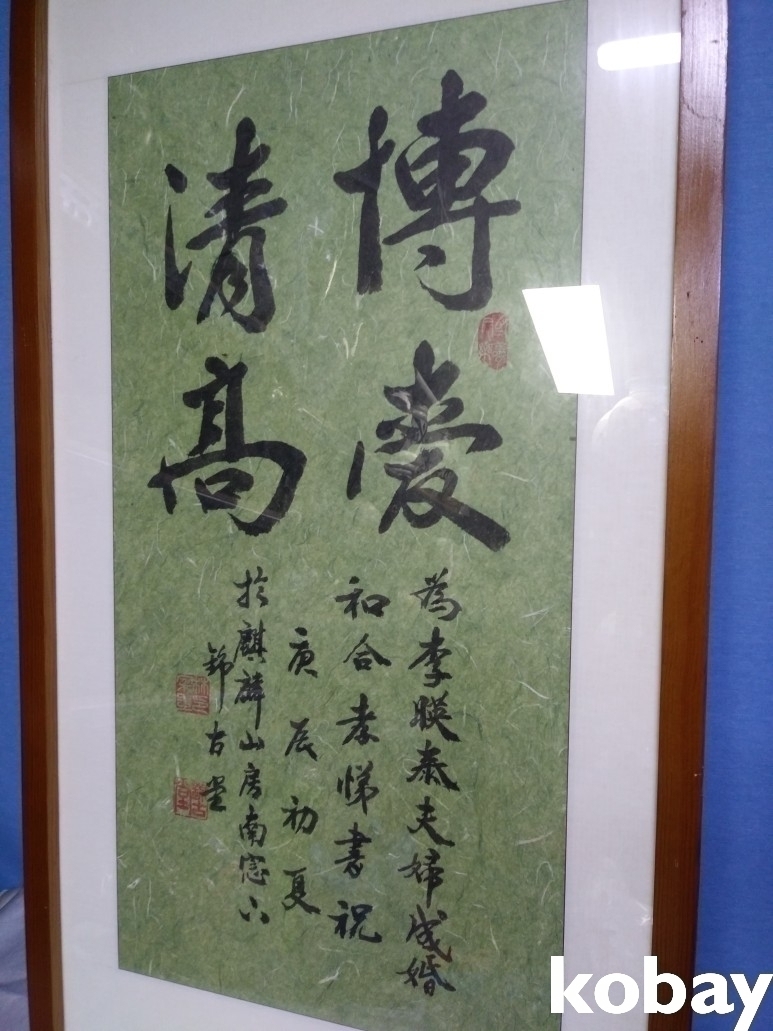 博愛
清高
為李暎泰夫婦成婚
和合孝悌書祝
庚辰初夏
於麒麟山房南窓下
錦古堂
kobay